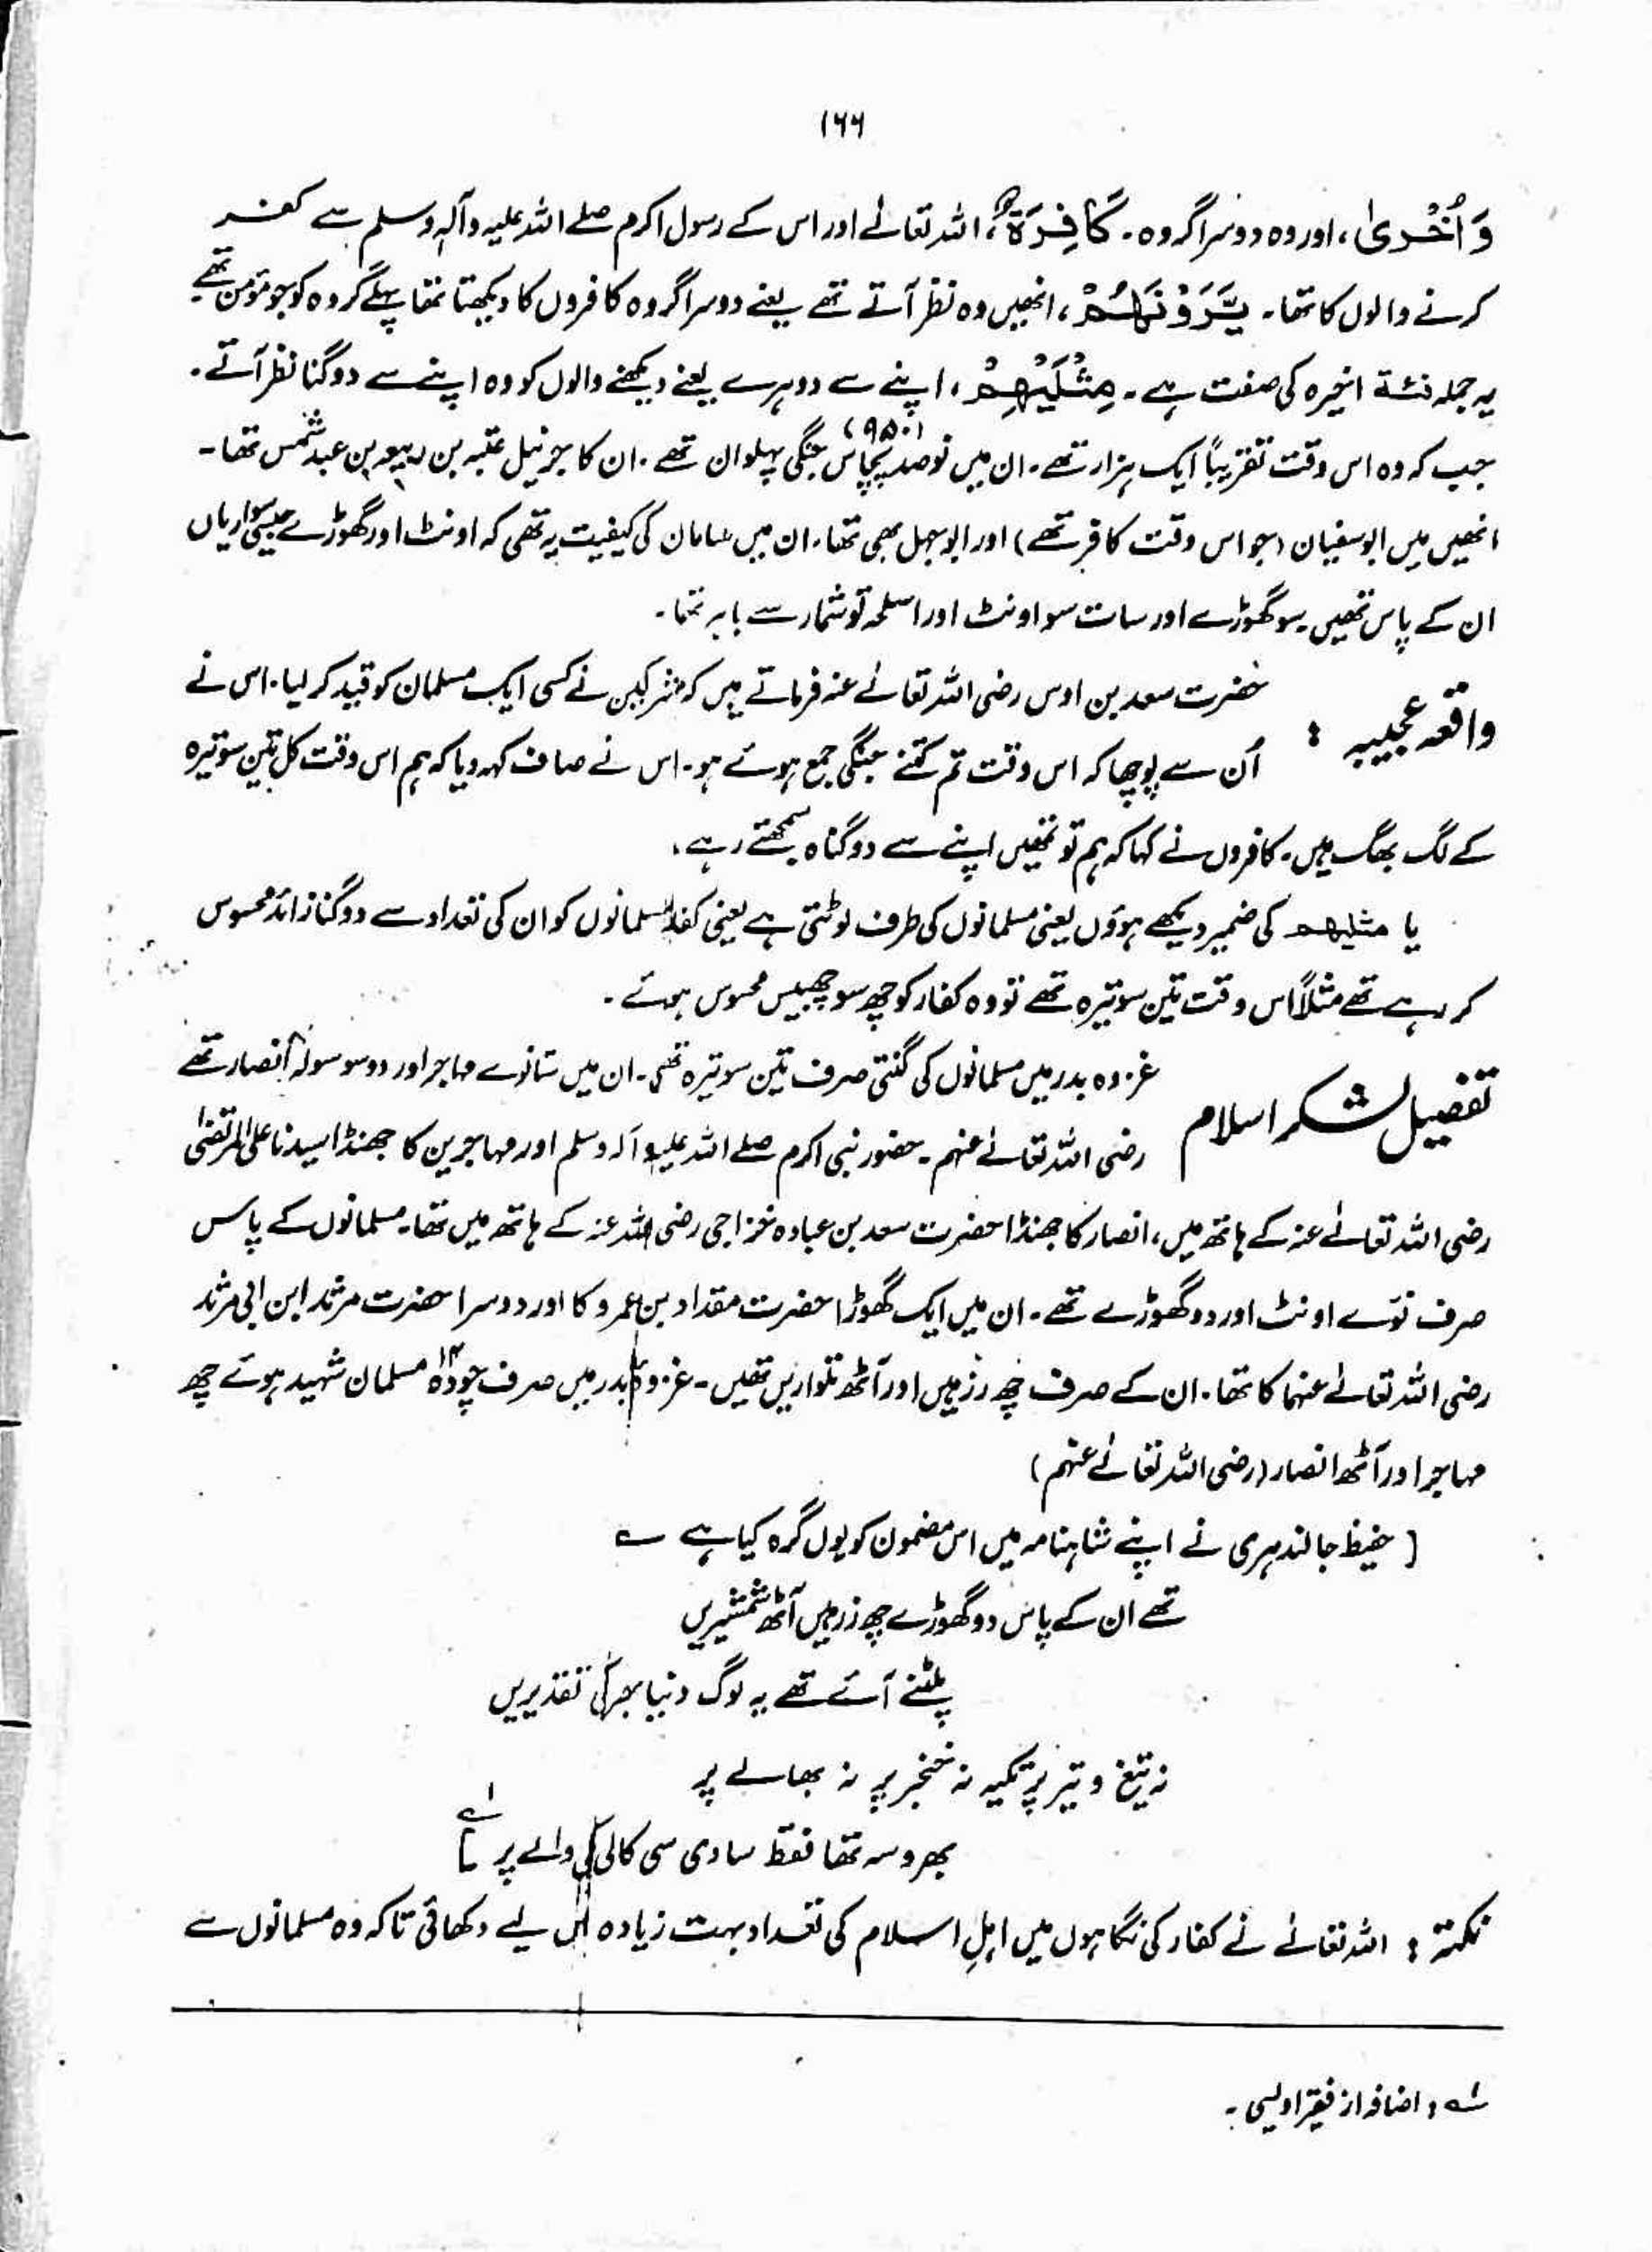 ۱۶۶
وَ اُخْرٰی ، اور وہ دوسرا گروہ ۔ کَافِرَۃٌ ، اللہ تعالےٰ اور اس کے رسول اکرم صلے اللہ علیہ وآلہٖ وسلم سے کفر
کرنے والوں کا تھا ۔ یَّرَوْنَھُمْ ، انھیں وہ نظر آتے تھے یعنے دوسرا گروہ کافروں کا دیکھتا تھا پہلے گروہ کو جو مؤمن تھے
یہ جملہ فئۃ اخیرہ کی صفت ہے ۔ مِثْلَیْھِمْ ، اپنے سے دوہرے یعنے دیکھنے والوں کو وہ اپنے سے دوگنا نظر آتے ۔
جب کہ وہ اس وقت تقریباً ایک ہزار تھے ۔ ان میں نو صد پچاس (۹۵۰) جنگی پہلوان تھے ۔ ان کا جرنیل عتبہ بن ربیعہ بن عبد شمس تھا ۔
انھیں میں ابوسفیان (جو اس وقت کافر تھے) اور ابوجہل بھی تھا ۔ ان میں سامان کی کیفیت یہ تھی کہ اونٹ اور گھوڑے جیسی سواریاں
ان کے پاس تھیں ۔ سو گھوڑے اور سات سو اونٹ اور اسلحہ تو شمار سے باہر تھا ۔
واقعہ عجیبہ : حضرت سعد بن اوس رضی اللہ تعالےٰ عنہ فرماتے ہیں کہ مشرکین نے کسی ایک مسلمان کو قید کر لیا ۔ اس نے
اُن سے پوچھا کہ اس وقت تم کتنے جنگی جمع ہوئے ہو ۔ اس نے صاف کہہ دیا کہ ہم اس وقت کل تین سو تیرہ
کے لگ بھگ ہیں ۔ کافروں نے کہا کہ ہم تو تمھیں اپنے سے دوگناہ سمجھتے رہے ،
یا مثلیھم کی ضمیر دیکھے ہوؤں یعنی مسلمانوں کی طرف لوٹتی ہے یعنی کفار مسلمانوں کو ان کی تعداد سے دوگنا زائد محسوس
کر رہے تھے مثلاً اس وقت تین سو تیرہ تھے تو وہ کفار کو چھ سو چھبیس محسوس ہوئے ۔
تفصیل لشکر اسلام غزوہ بدر میں مسلمانوں کی گنتی صرف تین سو تیرہ تھی ۔ ان میں ستانوے مہاجر اور دو سو سولہ انصار تھے
رضی اللہ تعالےٰ عنہم ۔ حضور نبی اکرم صلے اللہ علیہ وآلہ وسلم اور مہاجرین کا جھنڈا سیدنا علی المرتضیٰ
رضی اللہ تعالےٰ عنہ کے ہاتھ میں ، انصار کا جھنڈا حضرت سعد بن عبادہ خزاجی رضی اللہ عنہ کے ہاتھ میں تھا ۔ مسلمانوں کے پاس
صرف نوّے اونٹ اور دو گھوڑے تھے ۔ ان میں ایک گھوڑا حضرت مقداد بن عمرو کا اور دوسرا حضرت مرثد ابن ابی مرثد
رضی اللہ تعالےٰ عنہما کا تھا ۔ ان کے صرف چھ زرہیں اور آٹھ تلواریں تھیں ۔ غزوہ بدر میں صرف چودہ ۱۴ مسلمان شہید ہوئے چھ
مہاجر اور آٹھ انصار (رضی اللہ تعالےٰ عنہم)
[ حفیظ جالندہری نے اپنے شاہنامہ میں اس مضمون کو یوں گرہ کیا ہے ؎
تھے ان کے پاس دو گھوڑے چھ زرہیں آٹھ شمشیریں
پلٹنے آئے تھے یہ لوگ دنیا بھر کی تقدیریں
نہ تیغ و تیر پر تکیہ نہ خنجر پر نہ بھالے پر
بھروسہ تھا فقط سادی سی کالی کملی والے پر ] لہ
نکتہ : اللہ تعالےٰ نے کفار کی نگاہوں میں اہلِ اسلام کی تعداد بہت زیادہ اس لیے دکھائی تاکہ وہ مسلمانوں سے
لہ ، اضافہ از فقیر اویسی ۔